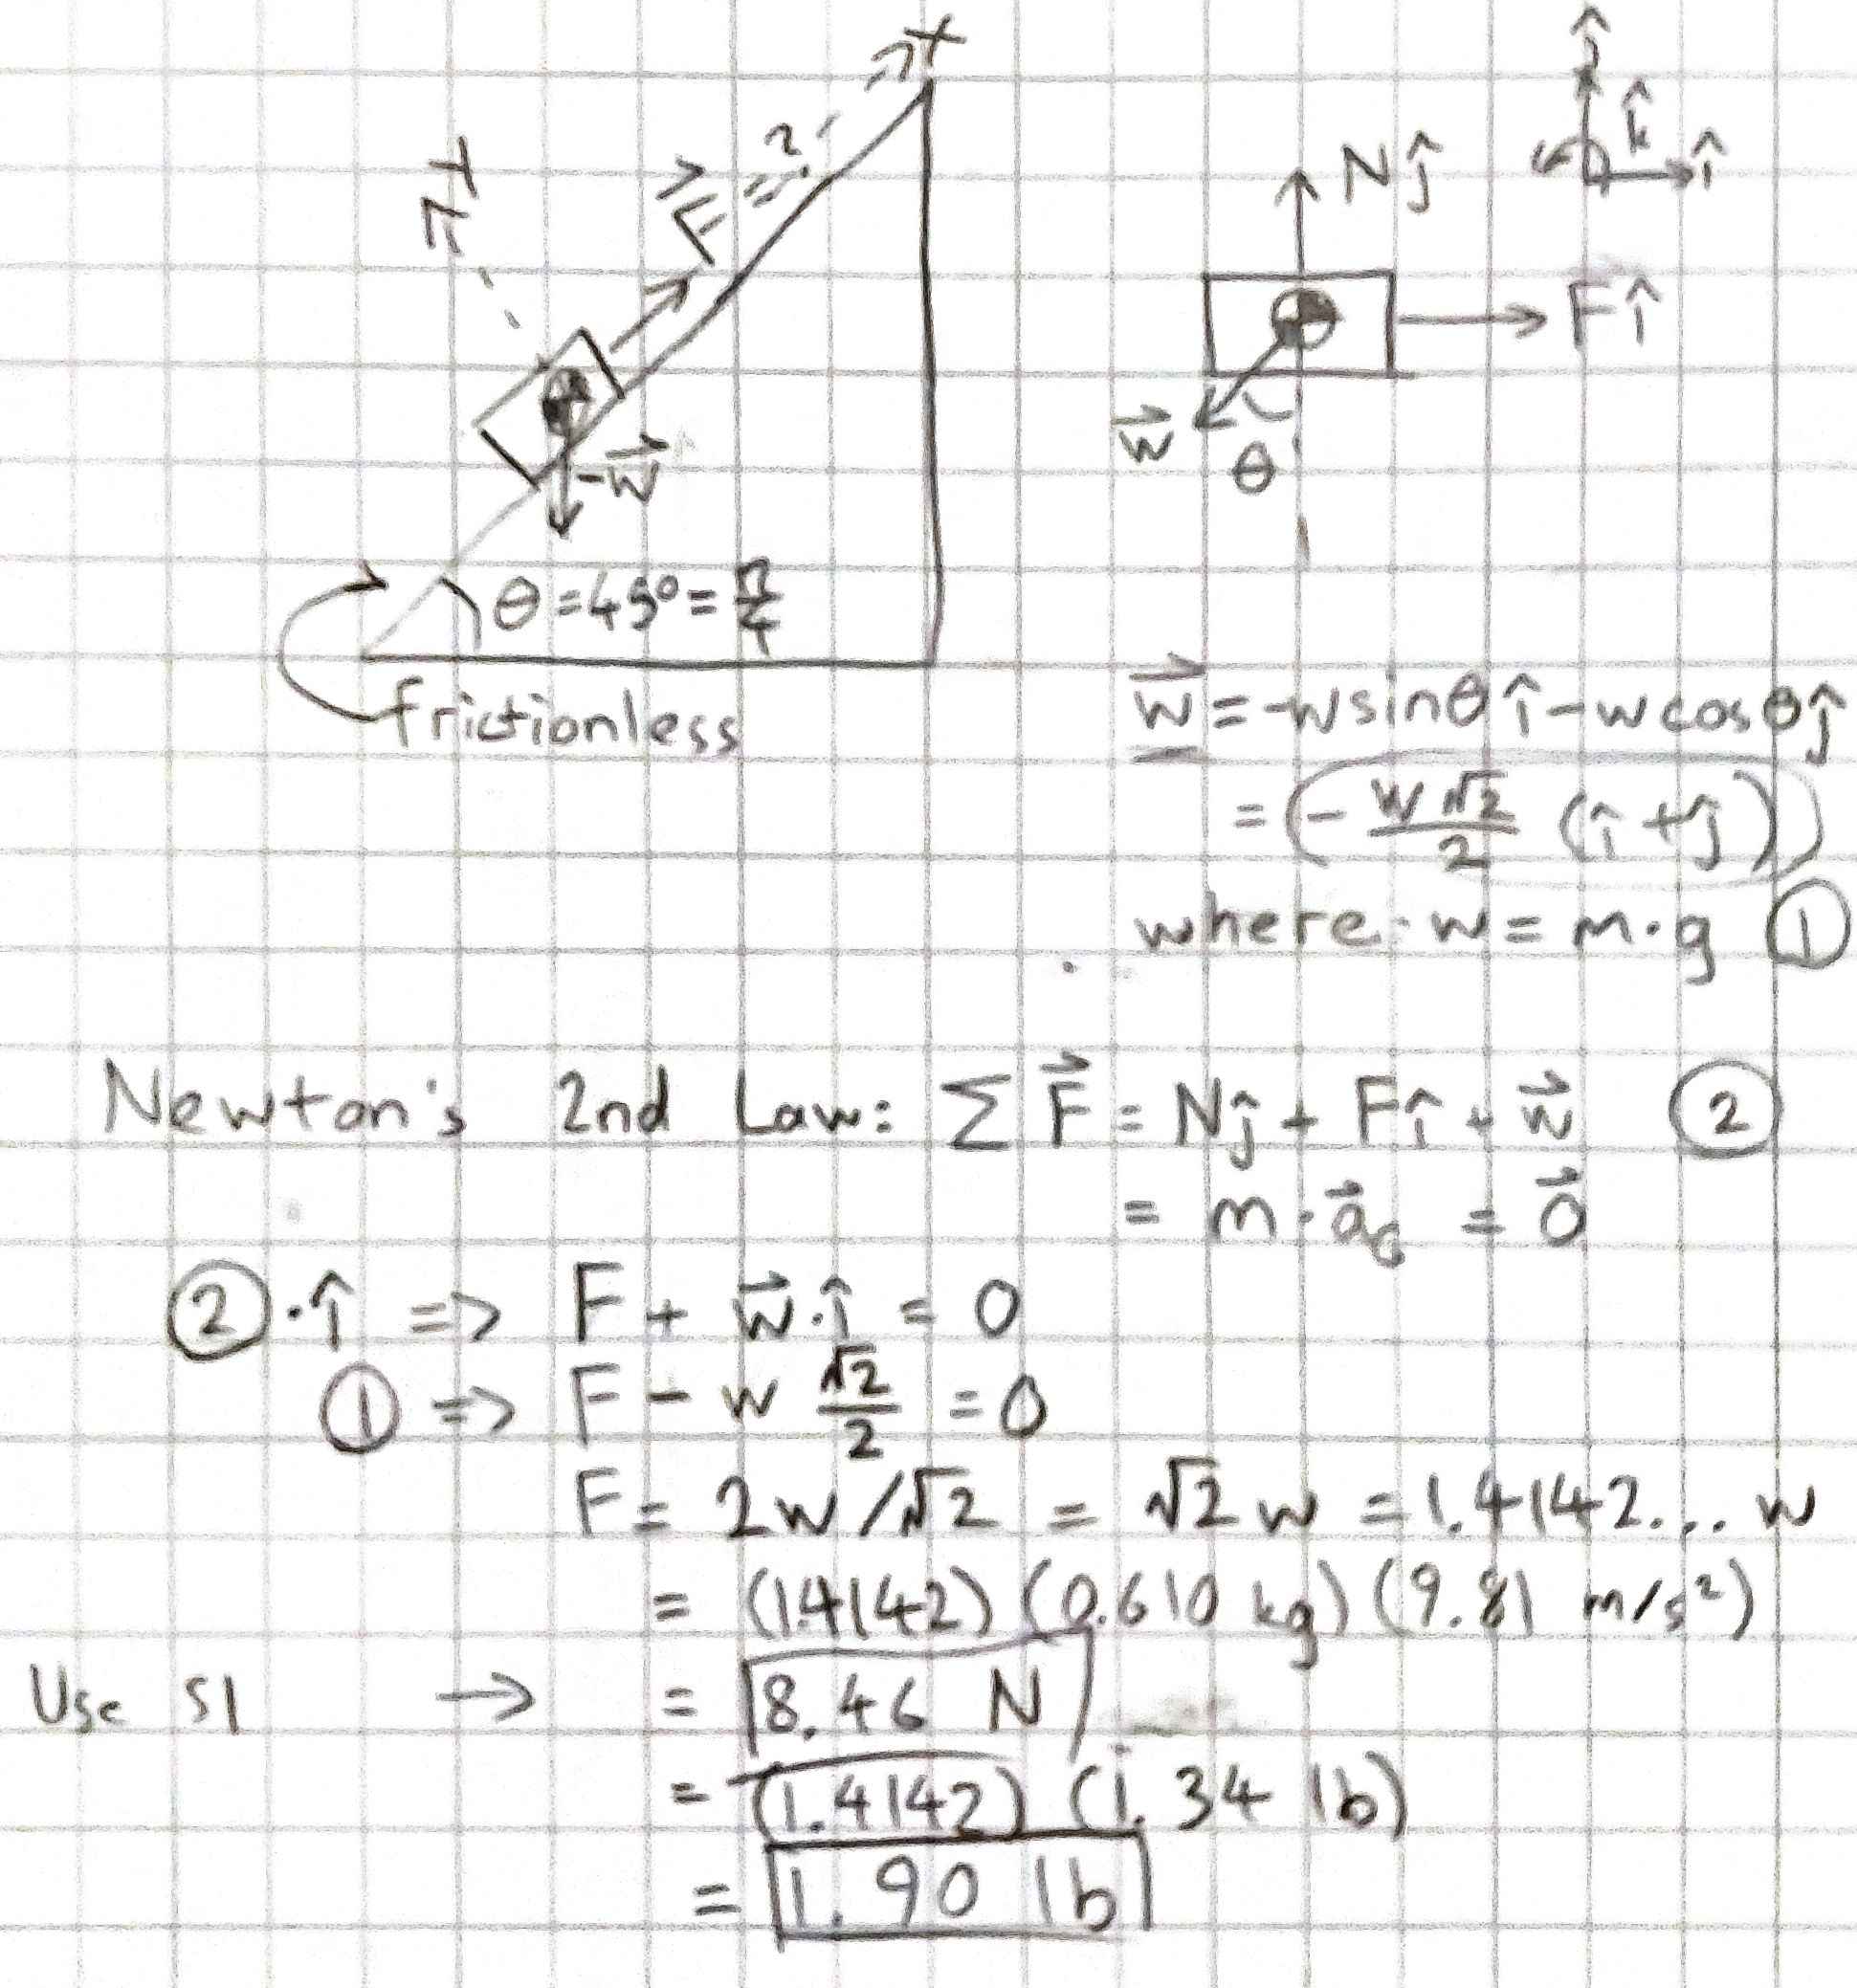 F⃗ = ?
-w⃗
θ = 45° = π/4
frictionless
ĵ
k̂
î
Nĵ
Fî
w⃗
θ
w⃗ = -w sinθ î - w cosθ ĵ
= (- w√2/2 (î + ĵ))
where w = m·g ①
Newton's 2nd Law: Σ F⃗ = Nĵ + Fî + w⃗ ②
= m·a⃗G = 0⃗
②·î => F + w⃗·î = 0
① => F - w √2/2 = 0
F = 2w/√2 = √2 w = 1.4142... w
= (1.4142) (0.610 kg) (9.81 m/s²)
Use SI → = 8.46 N
= (1.4142) (1.34 lb)
= 1.90 lb